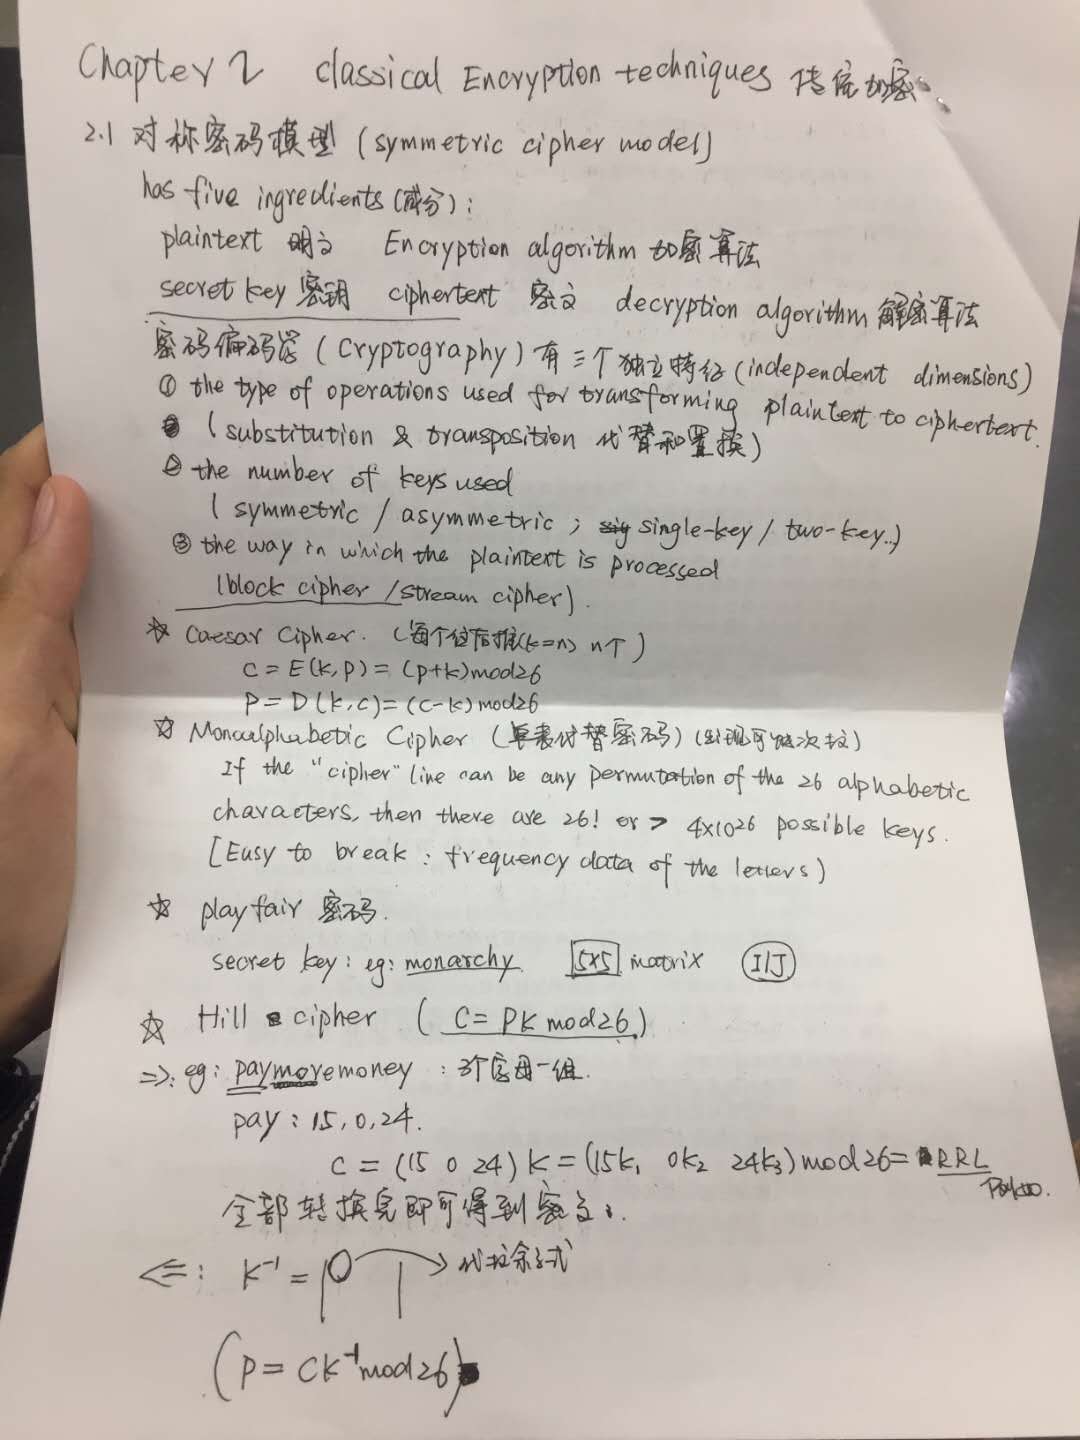 Chapter 2 classical Encryption techniques 传统加密
2.1 对称密码模型 (symmetric cipher model)
has five ingredients (成分):
plaintext 明文 Encryption algorithm 加密算法
secret key 密钥 ciphertext 密文 decryption algorithm 解密算法
密码编码学 (Cryptography) 有三个独立特征 (independent dimensions)
① the type of operations used for transforming plaintext to ciphertext.
(substitution & transposition 代替和置换)
② the number of keys used
(symmetric / asymmetric ; single-key / two-key..)
③ the way in which the plaintext is processed
(block cipher / stream cipher).
☆ Caesar Cipher. (每个位后推(k=n) n个)
C = E(k,p) = (p+k)mod26
P = D(k,c) = (c-k)mod26
☆ Monoalphabetic Cipher (单表代替密码) (出现可能次数)
If the "cipher" line can be any permutation of the 26 alphabetic
characters, then there are 26! or > 4×10²⁶ possible keys.
[Easy to break : frequency data of the letters)
☆ playfair 密码.
secret key : eg: monarchy 5×5 matrix I/J
☆ Hill cipher ( C = PK mod26 )
=>: eg: paymoremoney : 3个字母一组.
pay : 15, 0, 24.
C = (15 0 24) K = (15k₁ 0k₂ 24k₃) mod26 = RRL
全部转换完即可得到密文.
<=: K⁻¹ = 代数余子式
(P = CK⁻¹mod26)